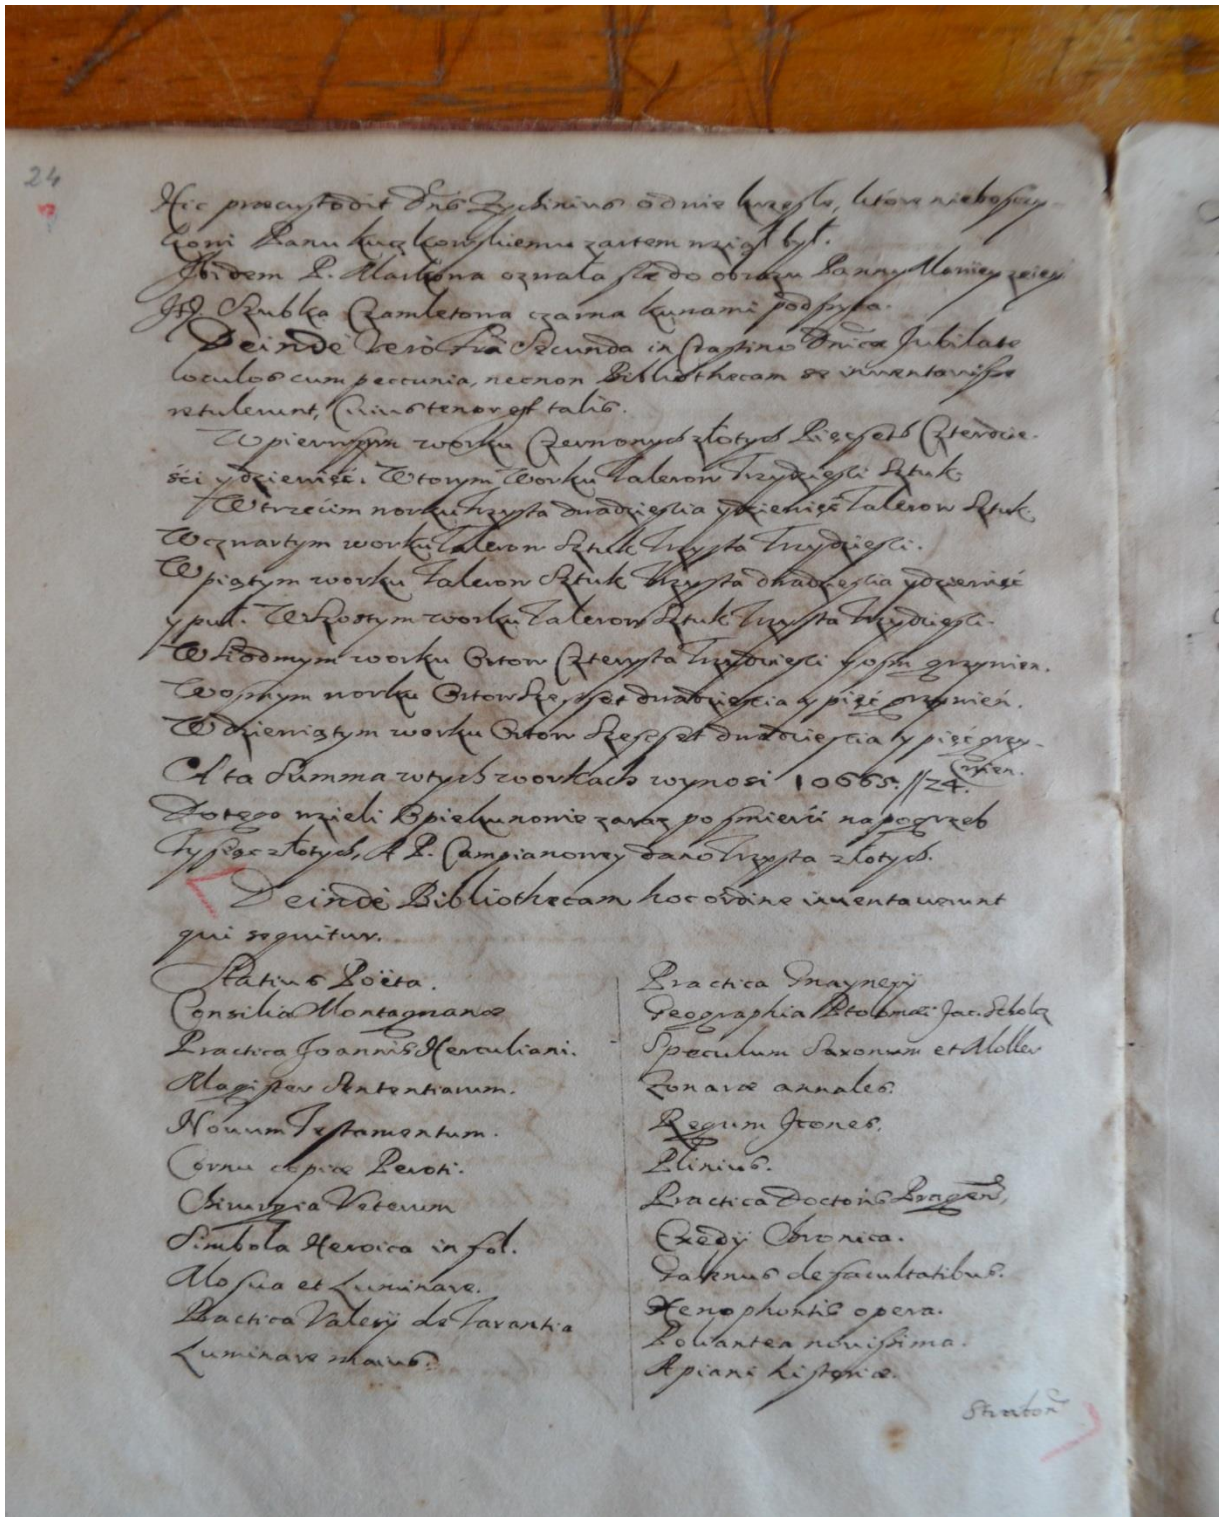 24
Hic przeuszodit Dns Zychinius o dwie krzesle, które nieboszczy-
kowi Panu Kuczkowskiemu zartem wziął był.
Ibidem P. Markona ozwała się do obrazu Panny Mariey
Szubka Czamletowa czarna kunami podszyta.
Deinde Vero Fria Secunda in Crastino Dnicæ Jubilate
loculos cum peccunia, necnon Bibliothecam se inventarisse
retulerunt, Cuius tenor est talis.
W pierwszym worku Czerwonych złotych Pięcseth Czterdzie-
ści y dziewięć. W torym Worku Talerow Trzydziesci Sztuk.
W trzecim worku Trzysta dwadziescia y dziewięć Talerow Sztuk
W czwartym worku Talerow Sztuk Trzysta Trzydziesci.
W piątym worku Talerow Sztuk Trzysta dwadziescia y dziewięć
y puł. W Szostym worku Talerow Sztuk Trzysta Trzydziesci.
W Siodmym worku Ortow Czterysta Trzydziesci y osm grzywien.
W osmym worku Ortow Szescset dwadziescia y pięć grzywień.
W dziewiątym worku Ortow Szescset dwadziescia y pięć grzy-
wien.
A ta Summa w tych workach wynosi 10665.//24.
Do tego wzieli Opiekunowie zaraz po smierći na pogrzeb
Tysiąc złotych, A P. Campianowey dano Trzysta złotych.
Deinde Bibliothecam hoc ordine inuentauerunt
qui sequitur.
Statius Poëta.
Consilia Montagnanæ
Practica Joannis Herculiani.
Magister Sententiarum.
Nouum Testamentum.
Cornu copiæ Peroti.
Chirurgia Veterum
Simbola Heroica in fol.
Mosua et Luminare.
Practica Valerÿ de Tarantia
Luminare maius.
Practica Gnaynerÿ
Geographia Ptolomæi Jac. Scholcz
Speculum Saxonum et Moller
Zonaræ annales.
Regum Icones.
Plinius.
Practica Doctoris Pragen,
Exedÿ Chronica.
Galenus de facultatibus.
Xenophontis opera.
Poliantea nouissima.
Apiani historiæ.
Straton